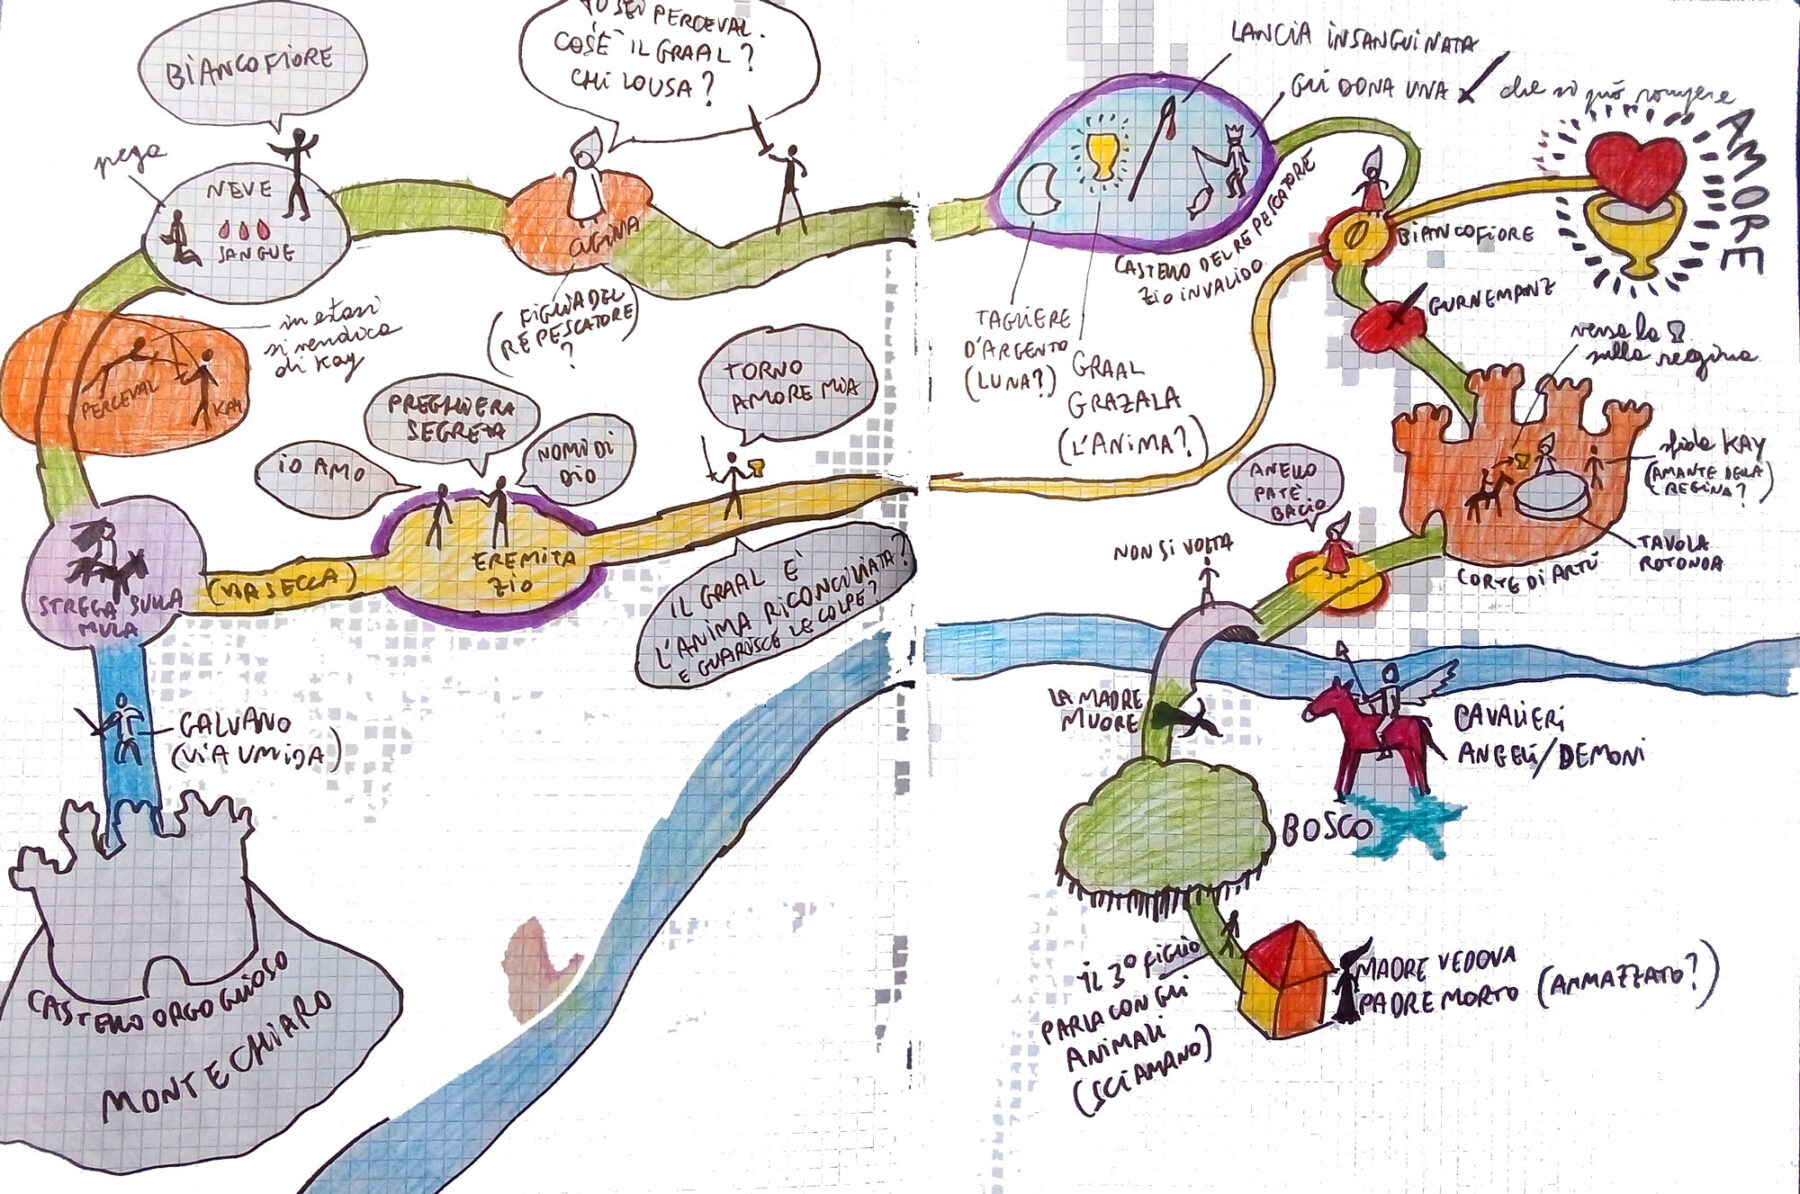 BIANCOFIORE
TU SEI PERCEVAL.
COS'È IL GRAAL?
CHI LO USA?
prega
NEVE
SANGUE
CUGINA
(FIGLIA DEL
RE PESCATORE)
?
in estasi
si vendica
di Kay
PERCEVAL
KAY
IO AMO
PREGHIERA
SEGRETA
NOMI DI
DIO
TORNO
AMORE MIA
STREGA SULLA
MULA
(VIA SECCA)
EREMITA
ZIO
IL GRAAL È
L'ANIMA RICONCILIATA?
E GUARISCE LE COLPE?
GALVANO
(VIA UMIDA)
CASTELLO ORGOGLIOSO
MONTE CHIARO
LANCIA INSANGUINATA
GLI DONA UNA che si può rompere
AMORE
CASTELLO DEL RE PESCATORE
ZIO INVALIDO
BIANCOFIORE
GURNEMANZ
TAGLIERE
D'ARGENTO
(LUNA?)
GRAAL
GRAZALA
(L'ANIMA?)
versa la
sulla regina
sfida KAY
(AMANTE DELLA
REGINA?)
TAVOLA
ROTONDA
CORTE DI ARTÙ
ANELLO
PATÈ
BACIO
NON SI VOLTA
LA MADRE
MUORE
CAVALIERI
ANGELI/DEMONI
BOSCO
IL 3° FIGLIO
PARLA CON GLI
ANIMALI
(SCIAMANO)
MADRE VEDOVA
PADRE MORTO (AMMAZZATO?)